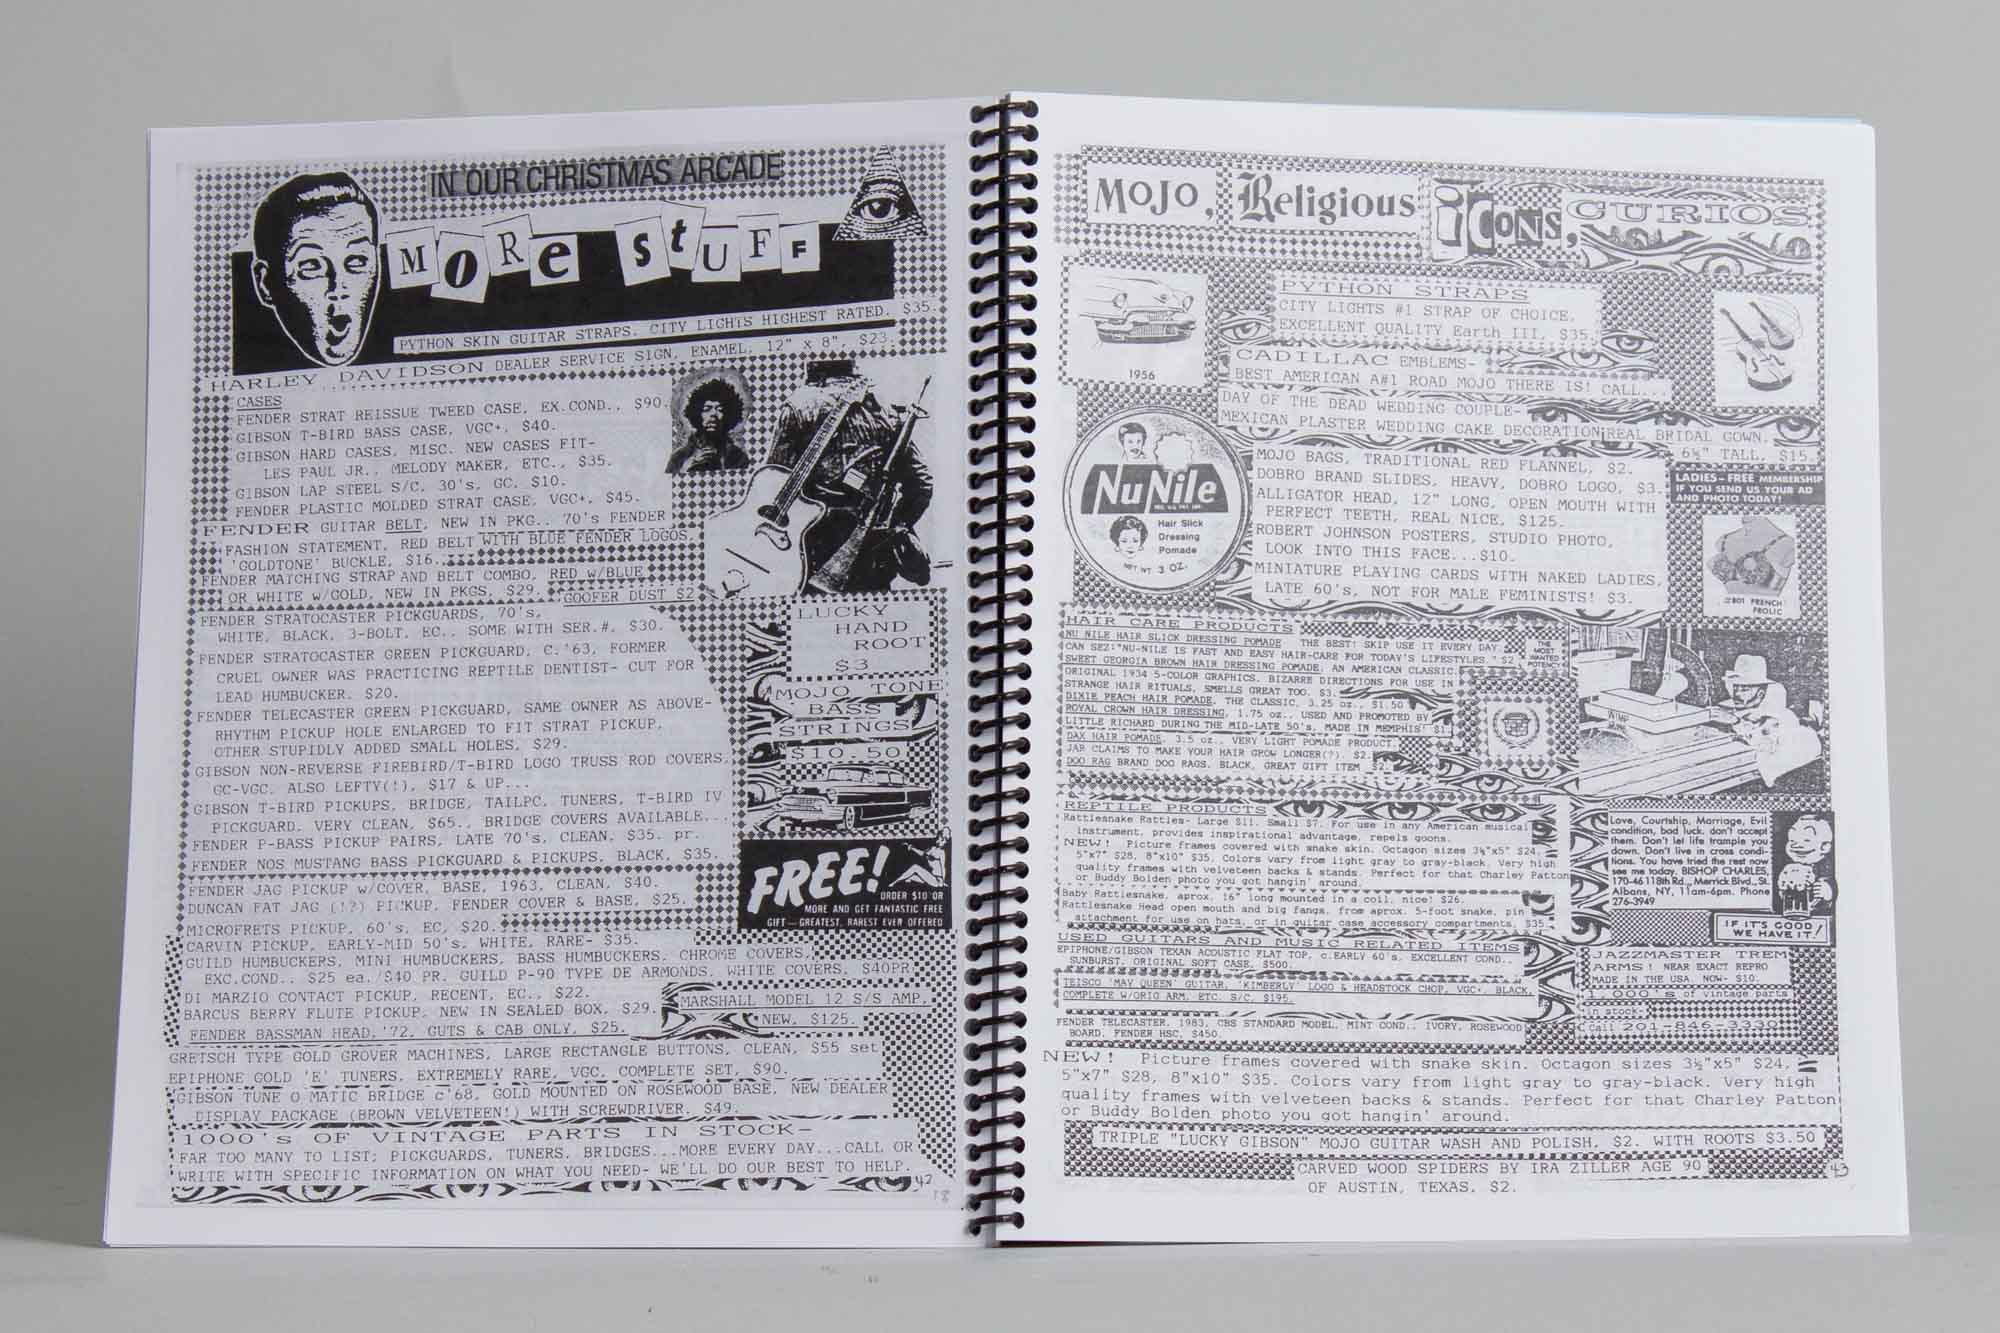 IN OUR CHRISTMAS ARCADE
MORe StUFF
PYTHON SKIN GUITAR STRAPS. CITY LIGHTS HIGHEST RATED. $35.
HARLEY DAVIDSON DEALER SERVICE SIGN, ENAMEL, 12" x 8", $23.
CASES
FENDER STRAT REISSUE TWEED CASE, EX.COND., $90.
GIBSON T-BIRD BASS CASE, VGC+, $40.
GIBSON HARD CASES, MISC. NEW CASES FIT-
LES PAUL JR., MELODY MAKER, ETC., $35.
GIBSON LAP STEEL S/C, 30's, GC. $10.
FENDER PLASTIC MOLDED STRAT CASE, VGC+, $45.
FENDER GUITAR BELT, NEW IN PKG., 70's FENDER
FASHION STATEMENT, RED BELT WITH BLUE FENDER LOGOS,
'GOLDTONE' BUCKLE, $16.
FENDER MATCHING STRAP AND BELT COMBO, RED w/BLUE
OR WHITE w/GOLD, NEW IN PKGS, $29.
GOOFER DUST $2
FENDER STRATOCASTER PICKGUARDS, 70's,
WHITE, BLACK, 3-BOLT, EC., SOME WITH SER.#, $30.
FENDER STRATOCASTER GREEN PICKGUARD, C.'63, FORMER
CRUEL OWNER WAS PRACTICING REPTILE DENTIST- CUT FOR
LEAD HUMBUCKER. $20.
FENDER TELECASTER GREEN PICKGUARD, SAME OWNER AS ABOVE-
RHYTHM PICKUP HOLE ENLARGED TO FIT STRAT PICKUP,
OTHER STUPIDLY ADDED SMALL HOLES, $29.
GIBSON NON-REVERSE FIREBIRD/T-BIRD LOGO TRUSS ROD COVERS,
GC-VGC, ALSO LEFTY(!), $17 & UP...
GIBSON T-BIRD PICKUPS, BRIDGE, TAILPC, TUNERS, T-BIRD IV
PICKGUARD. VERY CLEAN, $65., BRIDGE COVERS AVAILABLE...
FENDER P-BASS PICKUP PAIRS, LATE 70's, CLEAN, $35. pr.
FENDER NOS MUSTANG BASS PICKGUARD & PICKUPS, BLACK, $35.
FENDER JAG PICKUP w/COVER, BASE, 1963, CLEAN, $40.
DUNCAN FAT JAG (!?) PICKUP, FENDER COVER & BASE, $25.
MICROFRETS PICKUP, 60's, EC, $20.
CARVIN PICKUP, EARLY-MID 50's, WHITE, RARE- $35.
GUILD HUMBUCKERS, MINI HUMBUCKERS, BASS HUMBUCKERS, CHROME COVERS,
EXC.COND., $25 ea./$40 PR. GUILD P-90 TYPE DE ARMONDS, WHITE COVERS, $40PR
DI MARZIO CONTACT PICKUP, RECENT, EC., $22.
BARCUS BERRY FLUTE PICKUP, NEW IN SEALED BOX, $29.
FENDER BASSMAN HEAD, '72, GUTS & CAB ONLY, $25.
MARSHALL MODEL 12 S/S AMP,
NEW, $125.
GRETSCH TYPE GOLD GROVER MACHINES, LARGE RECTANGLE BUTTONS, CLEAN, $55 set
EPIPHONE GOLD 'E' TUNERS, EXTREMELY RARE, VGC, COMPLETE SET, $90.
GIBSON TUNE O MATIC BRIDGE c'68, GOLD MOUNTED ON ROSEWOOD BASE, NEW DEALER
DISPLAY PACKAGE (BROWN VELVETEEN!) WITH SCREWDRIVER, $49.
1000's OF VINTAGE PARTS IN STOCK-
FAR TOO MANY TO LIST; PICKGUARDS, TUNERS, BRIDGES...MORE EVERY DAY...CALL OR
WRITE WITH SPECIFIC INFORMATION ON WHAT YOU NEED- WE'LL DO OUR BEST TO HELP.
42
18
LUCKY
HAND
ROOT
$3
MOJO TONE
BASS
STRINGS
$10.50
FREE!
ORDER $10 OR
MORE AND GET FANTASTIC FREE
GIFT—GREATEST, RAREST EVER OFFERED
MOJO, Religious iCONS, CURIOS
1956
PYTHON STRAPS
CITY LIGHTS #1 STRAP OF CHOICE,
EXCELLENT QUALITY Earth III, $35.
CADILLAC EMBLEMS-
BEST AMERICAN A#1 ROAD MOJO THERE IS! CALL...
DAY OF THE DEAD WEDDING COUPLE-
MEXICAN PLASTER WEDDING CAKE DECORATION;REAL BRIDAL GOWN,
6½" TALL, $15.
MOJO BAGS, TRADITIONAL RED FLANNEL, $2.
DOBRO BRAND SLIDES, HEAVY, DOBRO LOGO, $3.
ALLIGATOR HEAD, 12" LONG, OPEN MOUTH WITH
PERFECT TEETH, REAL NICE, $125.
ROBERT JOHNSON POSTERS, STUDIO PHOTO,
LOOK INTO THIS FACE...$10.
MINIATURE PLAYING CARDS WITH NAKED LADIES,
LATE 60's, NOT FOR MALE FEMINISTS! $3.
NuNile
Hair Slick
Dressing
Pomade
NET WT. 3 OZ.
LADIES-FREE MEMBERSHIP
IF YOU SEND US YOUR AD
AND PHOTO TODAY!
#801 FRENCH
FROLIC
HAIR CARE PRODUCTS
NU NILE HAIR SLICK DRESSING POMADE THE BEST! SKIP USE IT EVERY DAY.
CAN SEZ:"NU-NILE IS FAST AND EASY HAIR-CARE FOR TODAY'S LIFESTYLES." $2
SWEET GEORGIA BROWN HAIR DRESSING POMADE, AN AMERICAN CLASSIC.
ORIGINAL 1934 5-COLOR GRAPHICS. BIZARRE DIRECTIONS FOR USE IN
STRANGE HAIR RITUALS, SMELLS GREAT TOO. $3.
DIXIE PEACH HAIR POMADE, THE CLASSIC, 3.25 oz., $1.50
ROYAL CROWN HAIR DRESSING, 1.75 oz., USED AND PROMOTED BY
LITTLE RICHARD DURING THE MID-LATE 50's, MADE IN MEMPHIS! $1.
DAX HAIR POMADE, 3.5 oz., VERY LIGHT POMADE PRODUCT,
JAR CLAIMS TO MAKE YOUR HAIR GROW LONGER(?). $2.
DOO RAG BRAND DOO RAGS. BLACK, GREAT GIFT ITEM $2.
THE
MOST
WANTED
POTENCY
REPTILE PRODUCTS
Rattlesnake Rattles- Large $11. Small $7. For use in any American musical
instrument, provides inspirational advantage, repels goons.
NEW! Picture frames covered with snake skin. Octagon sizes 3½"x5" $24,
5"x7" $28, 8"x10" $35. Colors vary from light gray to gray-black. Very high
quality frames with velveteen backs & stands. Perfect for that Charley Patton
or Buddy Bolden photo you got hangin' around.
Baby Rattlesnake, aprox. 16" long mounted in a coil, nice! $26.
Rattlesnake Head open mouth and big fangs, from aprox. 5-foot snake, pin
attachment for use on hats, or in guitar case accessory compartments, $35.
Love, Courtship, Marriage, Evil
condition, bad luck. don't accept
them. Don't let life trample you
down. Don't live in cross condi-
tions. You have tried the rest now
see me today. BISHOP CHARLES,
170-46 118th Rd., Merrick Blvd., St.
Albans, NY, 11am-6pm. Phone
276-3949
IF IT'S GOOD
WE HAVE IT!
USED GUITARS AND MUSIC RELATED ITEMS
EPIPHONE/GIBSON TEXAN ACOUSTIC FLAT TOP, c.EARLY 60's, EXCELLENT COND.,
SUNBURST, ORIGINAL SOFT CASE, $500.
TEISCO 'MAY QUEEN' GUITAR, 'KIMBERLY' LOGO & HEADSTOCK CHOP, VGC+, BLACK,
COMPLETE W/ORIG ARM, ETC. S/C, $195.
FENDER TELECASTER, 1983, CBS STANDARD MODEL, MINT COND., IVORY, ROSEWOOD
BOARD, FENDER HSC, $450.
JAZZMASTER TREM
ARMS! NEAR EXACT REPRO
MADE IN THE USA. NOW- $10.
1,000's of vintage parts
in stock.
Call 201-846-3330
NEW! Picture frames covered with snake skin. Octagon sizes 3½"x5" $24,
5"x7" $28, 8"x10" $35. Colors vary from light gray to gray-black. Very high
quality frames with velveteen backs & stands. Perfect for that Charley Patton
or Buddy Bolden photo you got hangin' around.
TRIPLE "LUCKY GIBSON" MOJO GUITAR WASH AND POLISH, $2. WITH ROOTS $3.50
CARVED WOOD SPIDERS BY IRA ZILLER AGE 90
OF AUSTIN, TEXAS, $2.
43